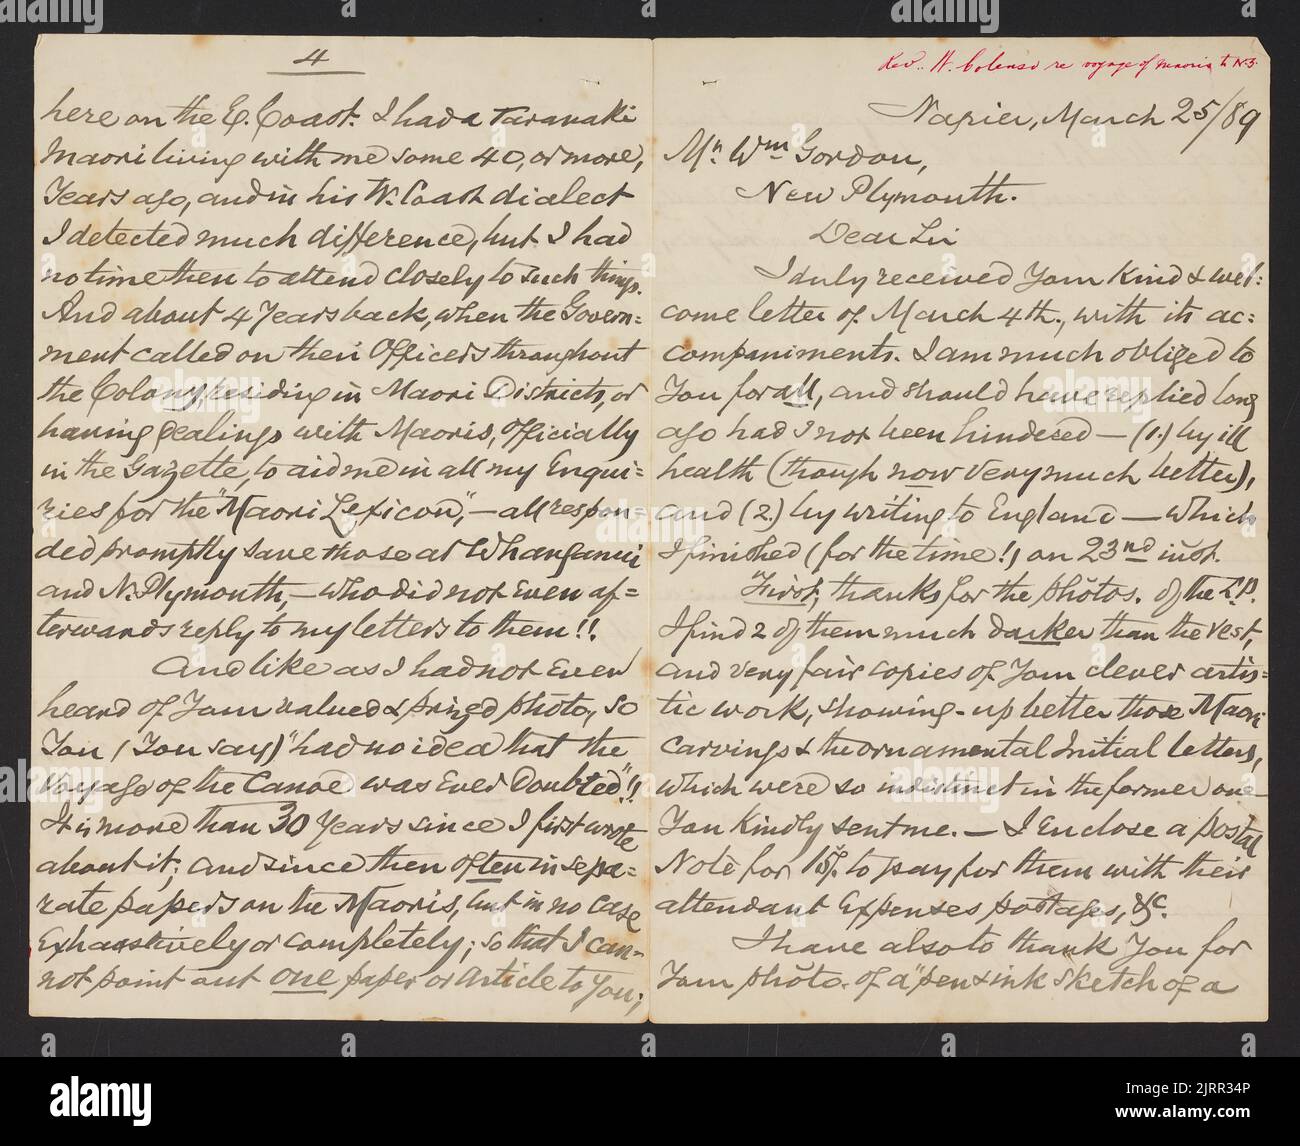 4
here on the E. Coast. I had a Taranaki
Maori living with me some 40, or more,
years ago, and in his W. Coast dialect
I detected much difference, but I had
no time then to attend closely to such things.
And about 4 years back, when the Govern=
ment called on their Officers throughout
the Colony, residing in Maori Districts, or
having dealings with Maoris, officially
in the Gazette, to aid me in all my Enqui=
ries for the "Maori Lexicon", – all respon=
ded promptly save those at Whanganui
and N. Plymouth, – who did not even af=
terwards reply to my letters to them!!.
And like as I had not even
heard of your valued & prized photo, so
you (you say) "had no idea that the
voyage of the Canoe was ever doubted"!!
It is more than 30 years since I first wrote
about it; and since then often in sepa=
rate papers on the Maoris, but in no case
Exhaustively or completely; so that I can-
not point out one paper or article to you;
Rev. W. Colenso re voyage of Maoris to N.Z.
Napier, March 25/89
Mr. Wm Gordon,
New Plymouth.
Dear Sir
I duly received your kind & wel=
come letter of March 4th., with its ac=
companiments. I am much obliged to
you for all, and should have replied long
ago had I not been hindered – (1.) by ill
health (though now very much better),
and (2.) by writing to England – which
I finished (for the time!) on 23nd inst.
"First, thanks for the photos. of the L.P.
I find 2 of them much darker than the rest,
and very fair copies of your clever artis=
tic work, showing-up better those Maori
carvings & the ornamental Initial letters,
which were so indistinct in the former one
you kindly sent me. – I enclose a postal
Note for 15/. to pay for them with their
attendant expenses postages, &c.
I have also to thank you for
your photo. of a "pen & ink sketch of a
a
alamy
Image ID: 2JRR34P
www.alamy.com